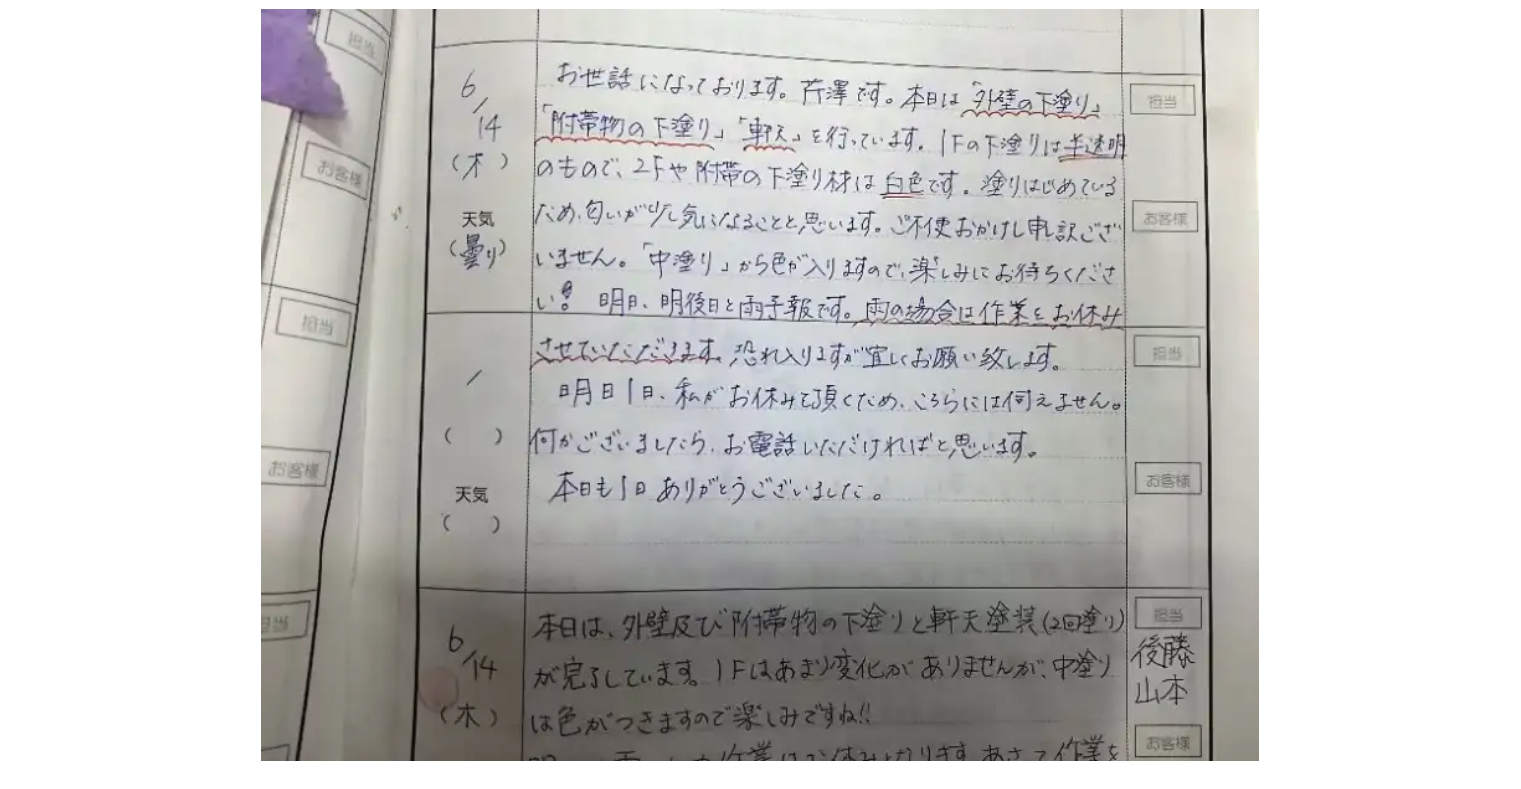 担当
お客様
担当
お客様
担当
6/14
(木)
天気
(曇り)
お世話になっております。芹澤です。本日は「外壁の下塗り」
「附帯物の下塗り」「軒天」を行っています。1Fの下塗りは半透明
のもので、2Fや附帯の下塗り材は白色です。塗りはじめている
ため、匂いが少し気になることと思います。ご不便おかけし申し訳ござ
いません。「中塗り」から色が入りますので、楽しみにお待ちくださ
い! 明日、明後日と雨予報です。雨の場合は作業をお休み
担当
お客様
/
( )
天気
( )
させていただきます。恐れ入りますが宜しくお願い致します。
明日1日、私がお休みを頂くため、こちらには伺えません。
何かございましたら、お電話いただければと思います。
本日も1日ありがとうございました。
担当
お客様
6/14
(木)
本日は、外壁及び附帯物の下塗りと軒天塗装(2回塗り)
が完了しています。1Fはあまり変化がありませんが、中塗り
は色がつきますので楽しみですね!!
担当
後藤
山本
お客様